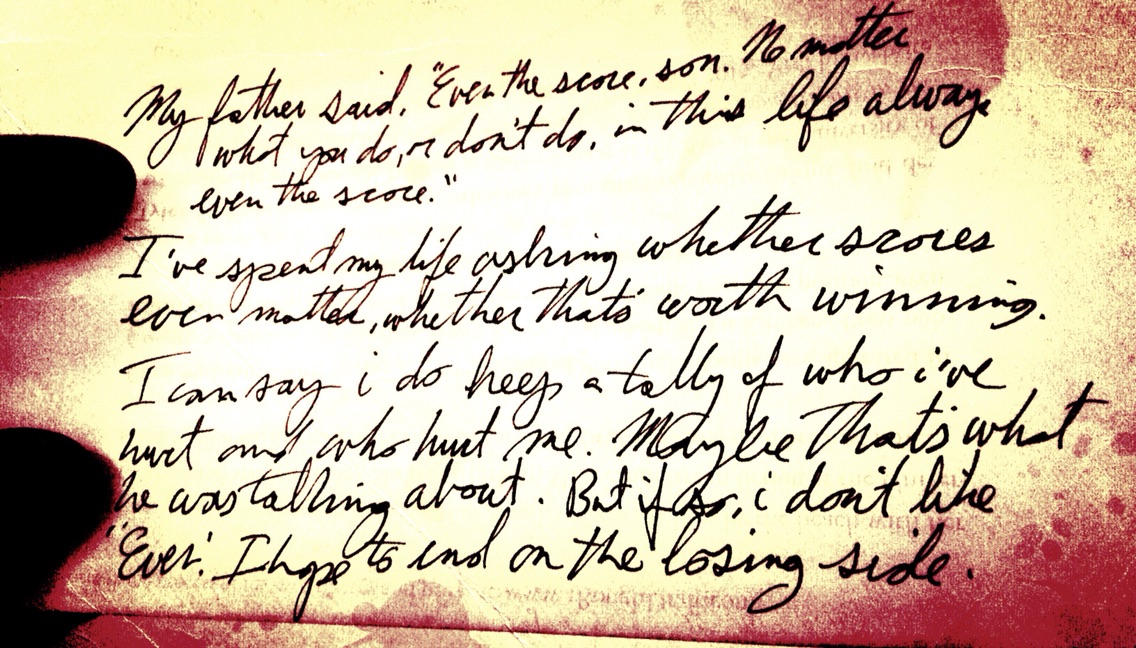 My father said, "Even the score, son. No matter
what you do, or don't do, in this life always
even the score."
I've spent my life asking whether scores
even matter, whether that's worth winning.
I can say i do keep a tally of who i've
hurt and who hurt me. Maybe that's what
he was talking about. But if so, i don't like
"Even". I hope to end on the losing side.